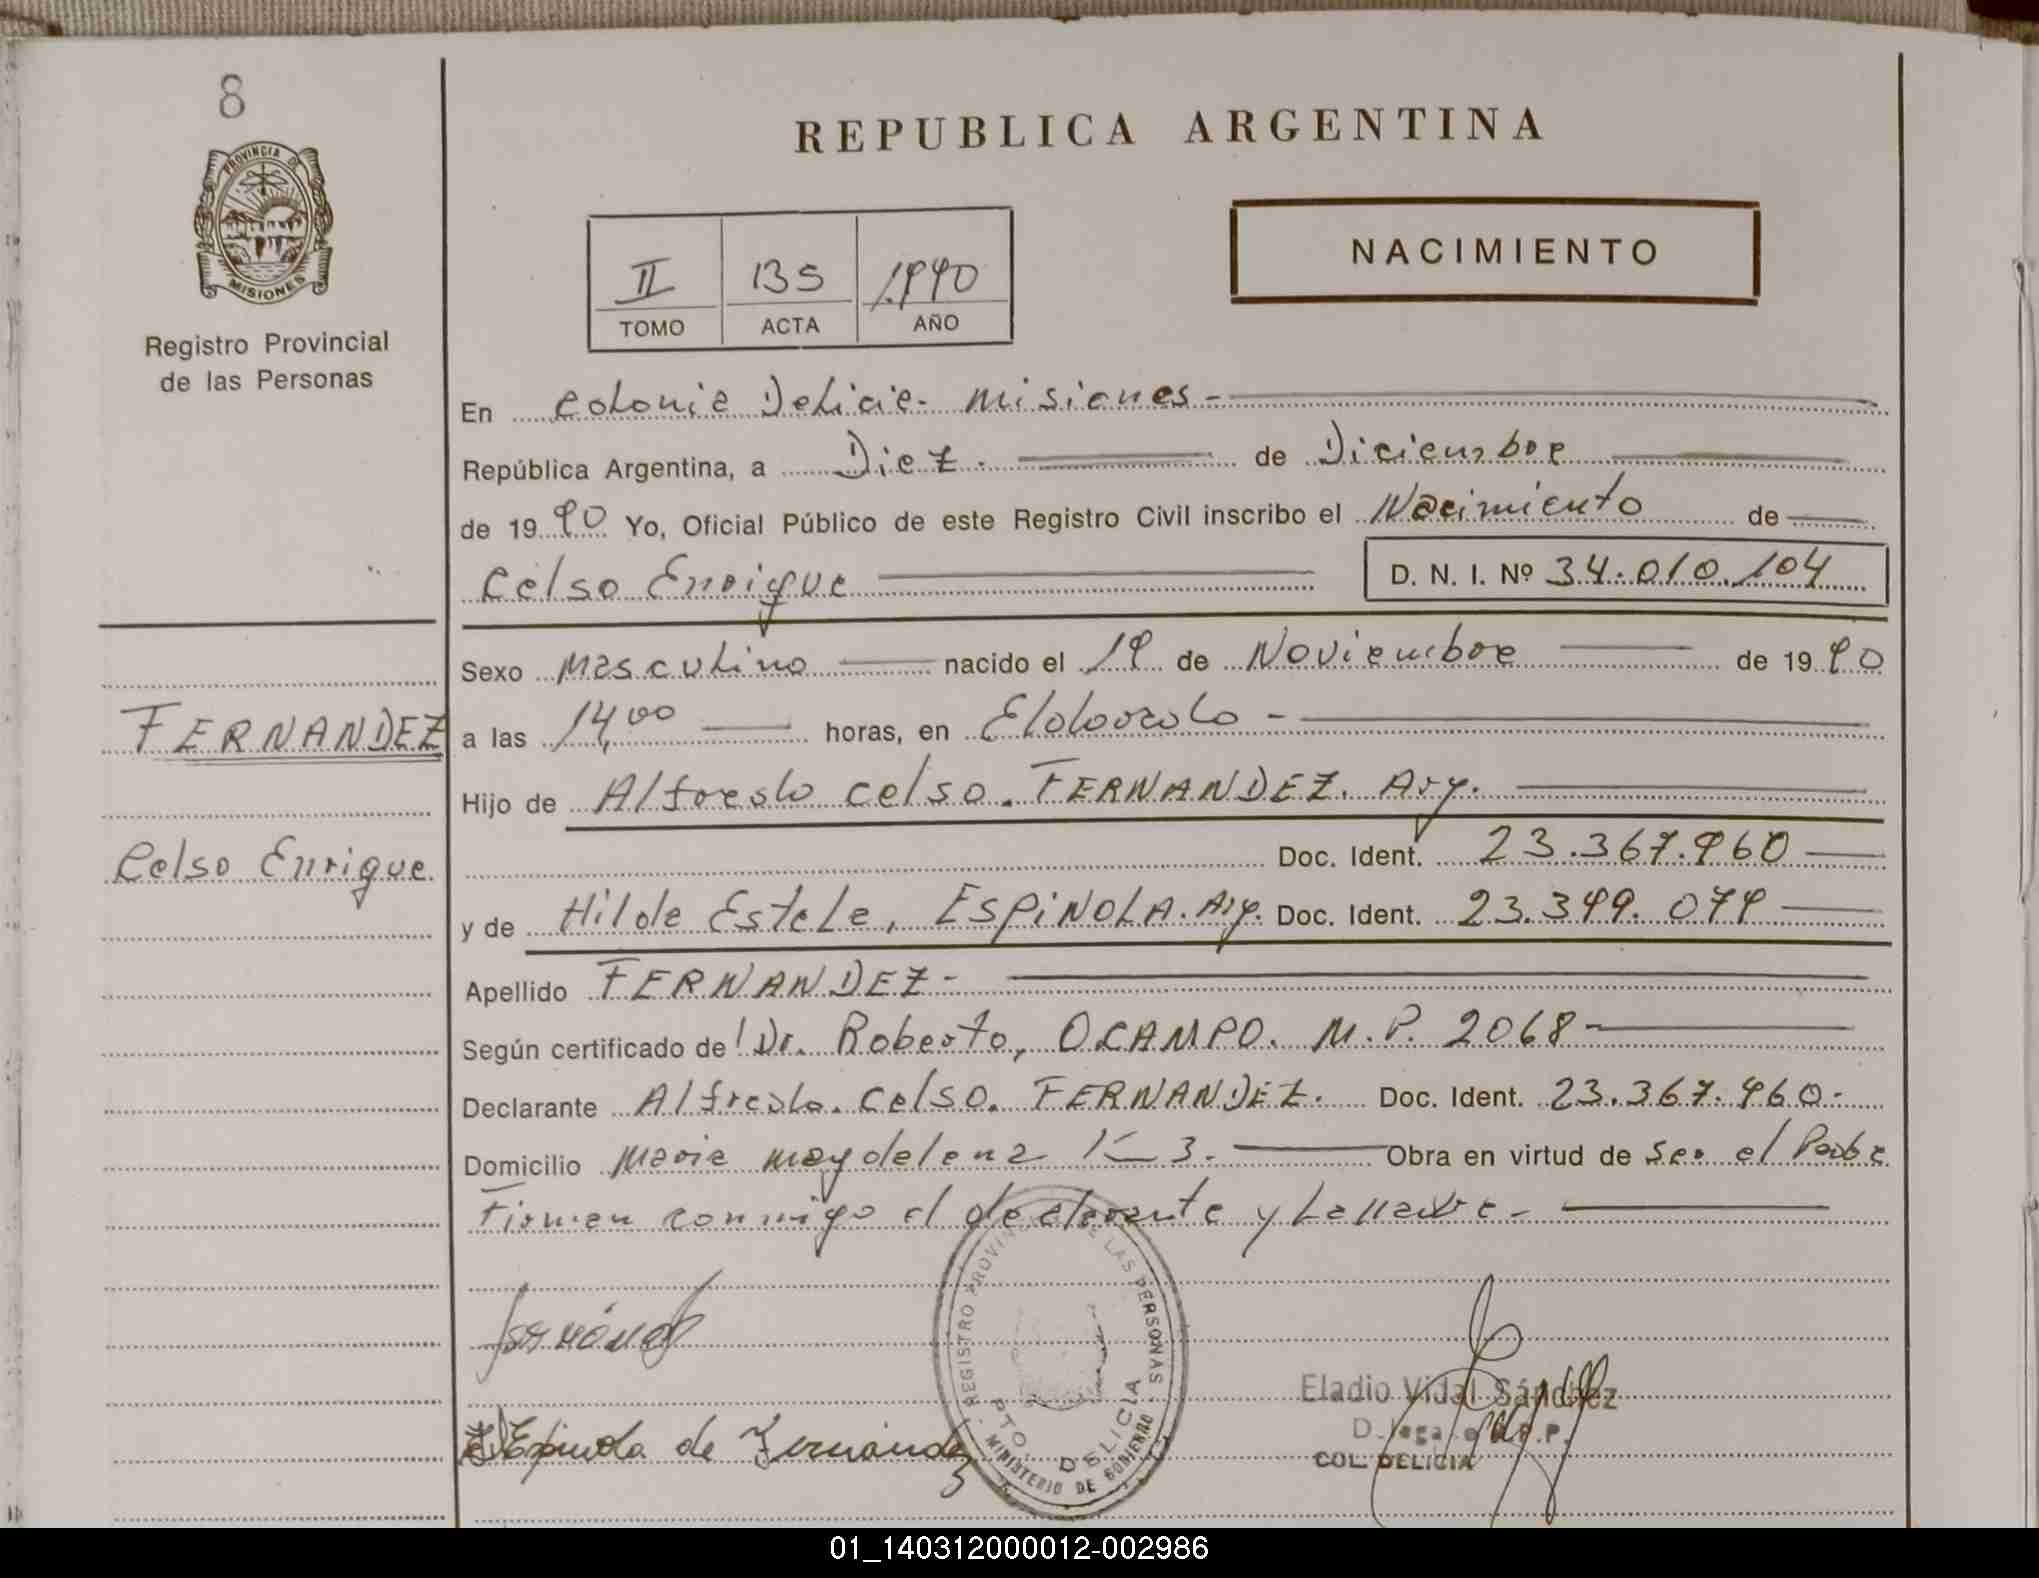 8
PROVINCIA DE
MISIONES
Registro Provincial
de las Personas
FERNANDEZ
Celso Enrique
REPUBLICA ARGENTINA
NACIMIENTO
II 135 1.990
TOMO ACTA AÑO
En Colonia Delicia - Misiones -
República Argentina, a Diez. de Diciembre
de 19 90 Yo, Oficial Público de este Registro Civil inscribo el Nacimiento de
Celso Enrique D. N. I. Nº 34.010.104
Sexo Masculino nacido el 19 de Noviembre de 19 90
a las 14,00 horas, en Eldorado -
Hijo de Alfredo Celso. FERNANDEZ. Arg.
Doc. Ident. 23.367.960
y de Hilda Estela, ESPINOLA. Arg. Doc. Ident. 23.399.079
Apellido FERNANDEZ -
Según certificado de Dr. Roberto, OCAMPO. M.P. 2068
Declarante Alfredo. Celso. FERNANDEZ. Doc. Ident. 23.367.960-
Domicilio Maria Magdalena K 3. Obra en virtud de Ser el Padre
Firman conmigo el declarante y La Madre -
REGISTRO PROVINCIAL DE LAS PERSONAS
PTO. DELICIA
MINISTERIO DE GOBIERNO
Eladio Vidal Sánchez
COL. DELICIA
Espinola de Fernández
01_140312000012-002986